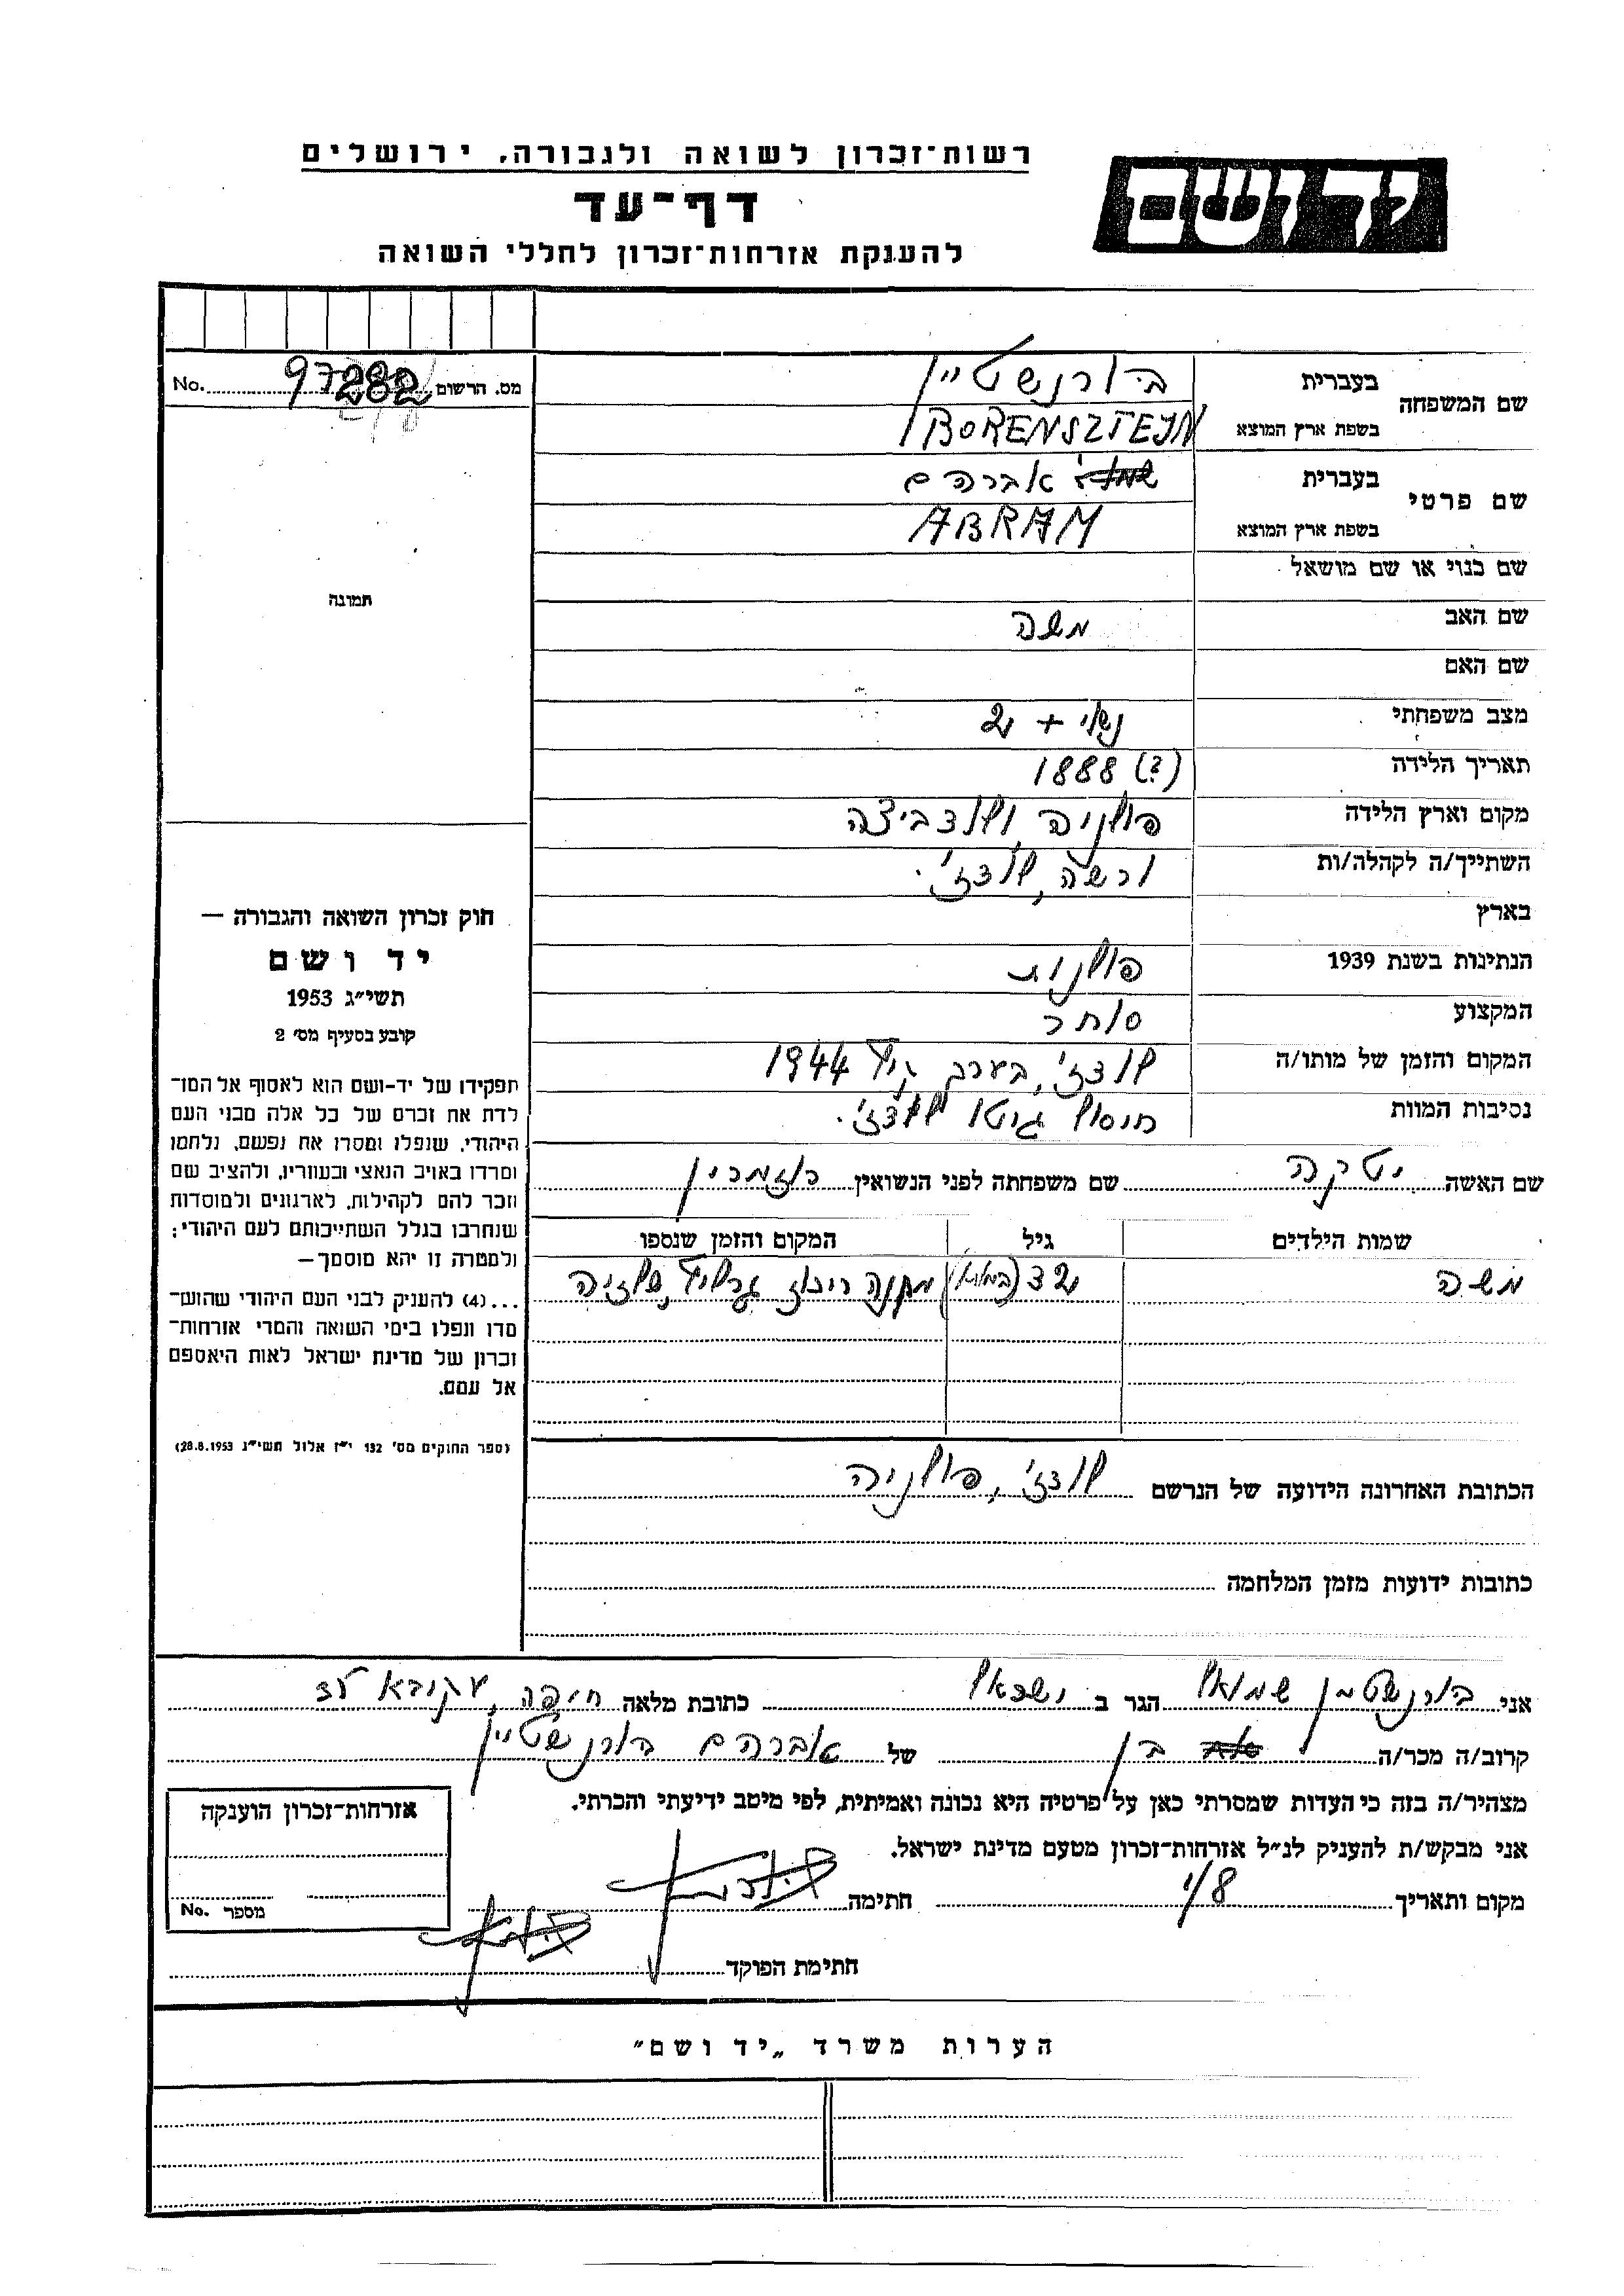 רשות־זכרון לשואה ולגבורה, ירושלים
יד ושם
דף־עד
להענקת אזרחות־זכרון לחללי השואה
No. 97282 מס. הרשום
שם המשפחה בעברית בורנשטיין
בשפת ארץ המוצא BORENSZTEJN
שם פרטי בעברית אברהם
בשפת ארץ המוצא ABRAM
שם כנוי או שם מושאל
תמונה
שם האב משה
שם האם
מצב משפחתי נשוי + 2
תאריך הלידה 1888 (?)
מקום וארץ הלידה פולניה
השתייך/ה לקהלה/ות ורשה, לודז'.
בארץ
הנתינות בשנת 1939 פולנית
המקצוע סוחר
המקום והזמן של מותו/ה לודז', בערך 1944
נסיבות המוות חיסול גיטו לודז'.
שם האשה יטקה שם משפחתה לפני הנשואין
שמות הילדים גיל המקום והזמן שנספו
משה 23 מחנה
הכתובת האחרונה הידועה של הנרשם לודז', פולניה
כתובות ידועות מזמן המלחמה
חוק זכרון השואה והגבורה —
יד ושם
תשי״ג 1953
קובע בסעיף מס׳ 2
תפקידו של יד-ושם הוא לאסוף אל המו־
לדת את זכרם של כל אלה מבני העם
היהודי, שנפלו ומסרו את נפשם, נלחמו
ומרדו באויב הנאצי ובעוזריו, ולהציב שם
וזכר להם לקהילות, לארגונים ולמוסדות
שנחרבו בגלל השתייכותם לעם היהודי;
ולמטרה זו יהא מוסמך—
...(4) להעניק לבני העם היהודי שהוש־
מדו ונפלו בימי השואה והמרי אזרחות־
זכרון של מדינת ישראל לאות היאספם
אל עמם.
(ספר החוקים מס׳ 132 י״ז אלול תשי״ג 28.8.1953)
אני בורנשטיין שמואל הגר ב ישראל כתובת מלאה חיפה, עקיבא
קרוב/ה מכר/ה בן של אברהם בורנשטיין
מצהיר/ה בזה כי העדות שמסרתי כאן על פרטיה היא נכונה ואמיתית, לפי מיטב ידיעתי והכרתי.
אני מבקש/ת להעניק לנ״ל אזרחות־זכרון מטעם מדינת ישראל.
מקום ותאריך חתימה
חתימת הפוקד
אזרחות־זכרון הוענקה
מספר No.
הערות משרד „יד ושם״